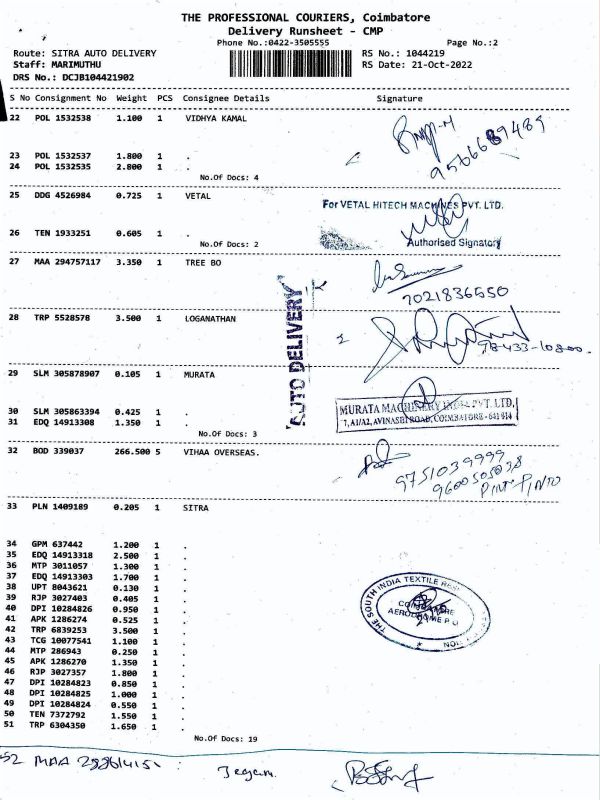 THE PROFESSIONAL COURIERS, Coimbatore
Delivery Runsheet - CMP
Phone No.:0422-3505555 Page No.:2
Route: SITRA AUTO DELIVERY RS No.: 1044219
Staff: MARIMUTHU RS Date: 21-Oct-2022
DRS No.: DCJB104421902
S No Consignment No Weight PCS Consignee Details Signature
22 POL 1532538 1.100 1 VIDHYA KAMAL
9566689489
23 POL 1532537 1.800 1 .
24 POL 1532535 2.800 1 .
No.Of Docs: 4
25 DDG 4526984 0.725 1 VETAL
For VETAL HITECH MACHINES PVT. LTD.
26 TEN 1933251 0.605 1 .
Authorised Signatory
No.Of Docs: 2
27 MAA 294757117 3.350 1 TREE BO
7021836550
AUTO DELIVERY
28 TRP 5528578 3.500 1 LOGANATHAN
98433-10800
29 SLM 305878907 0.105 1 MURATA
30 SLM 305863394 0.425 1 .
MURATA MACHINERY INDIA PVT. LTD,
31 EDQ 14913308 1.350 1 .
7, A1/A2, AVINASHI ROAD, COIMBATORE - 641 014
No.Of Docs: 3
32 BOD 339037 266.500 5 VIHAA OVERSEAS.
9751039999
9600505038
PINTO
33 PLN 1409189 0.205 1 SITRA
34 GPM 637442 1.200 1 .
35 EDQ 14913318 2.500 1 .
36 MTP 3011057 1.300 1 .
37 EDQ 14913303 1.700 1 .
38 UPT 8043621 0.130 1 .
39 RJP 3027403 0.405 1 .
40 DPI 10284826 0.950 1 .
41 APK 1286274 0.525 1 .
42 TRP 6839253 3.500 1 .
43 TCG 10077541 1.100 1 .
44 MTP 286943 0.250 1 .
45 APK 1286270 1.350 1 .
46 RJP 3027357 1.800 1 .
47 DPI 10284823 0.850 1 .
48 DPI 10284825 1.000 1 .
49 DPI 10284824 0.550 1 .
50 TEN 7372792 1.550 1 .
51 TRP 6304350 1.650 1 .
THE SOUTH INDIA TEXTILE
COIMBATORE
AERODROME P O
No.Of Docs: 19
52 MAA Jegan.